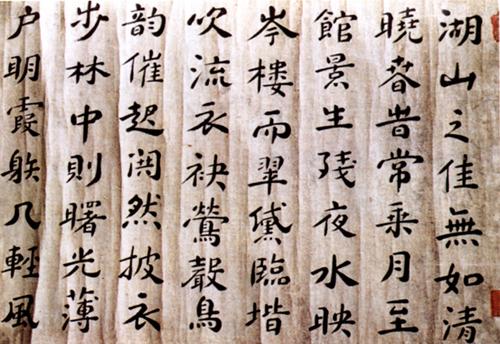 湖山之佳無如清
曉春昔常乘月至
館景生殘夜水映
岑樓而翠黛臨堦
吹流衣袂鶯聲鳥
韻催起閧然披衣
步林中則曙光薄
户明霞射几輕風